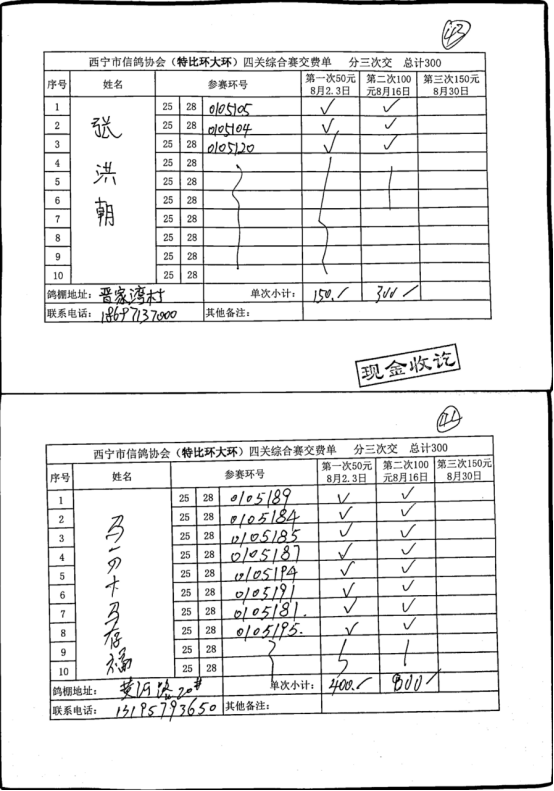 43
西宁市信鸽协会（特比环大环）四关综合赛交费单 分三次交 总计300
序号 姓名 参赛环号 第一次50元 8月2.3日 第二次100元8月16日 第三次150元 8月30日
1 25 28 0105105 ✓ ✓
2 25 28 0105104 ✓ ✓
3 25 28 0105120 ✓ ✓
4 25 28
5 25 28
6 25 28
7 25 28
8 25 28
9 25 28
10 25 28
张洪朝
鸽棚地址：晋家湾村 单次小计： 150.✓ 300✓
联系电话：18697137000 其他备注：
现金收讫
西宁市信鸽协会（特比环大环）四关综合赛交费单 分三次交 总计300
序号 姓名 参赛环号 第一次50元 8月2.3日 第二次100元8月16日 第三次150元 8月30日
1 25 28 0105189 ✓ ✓
2 25 28 0105184 ✓ ✓
3 25 28 0105185 ✓ ✓
4 25 28 0105187 ✓ ✓
5 25 28 0105194 ✓ ✓
6 25 28 0105191 ✓ ✓
7 25 28 0105181. ✓ ✓
8 25 28 0105195. ✓ ✓
9 25 28
10 25 28
马存福
鸽棚地址：黄河路20# 单次小计： 400.✓ 800✓
联系电话：13195793650 其他备注：